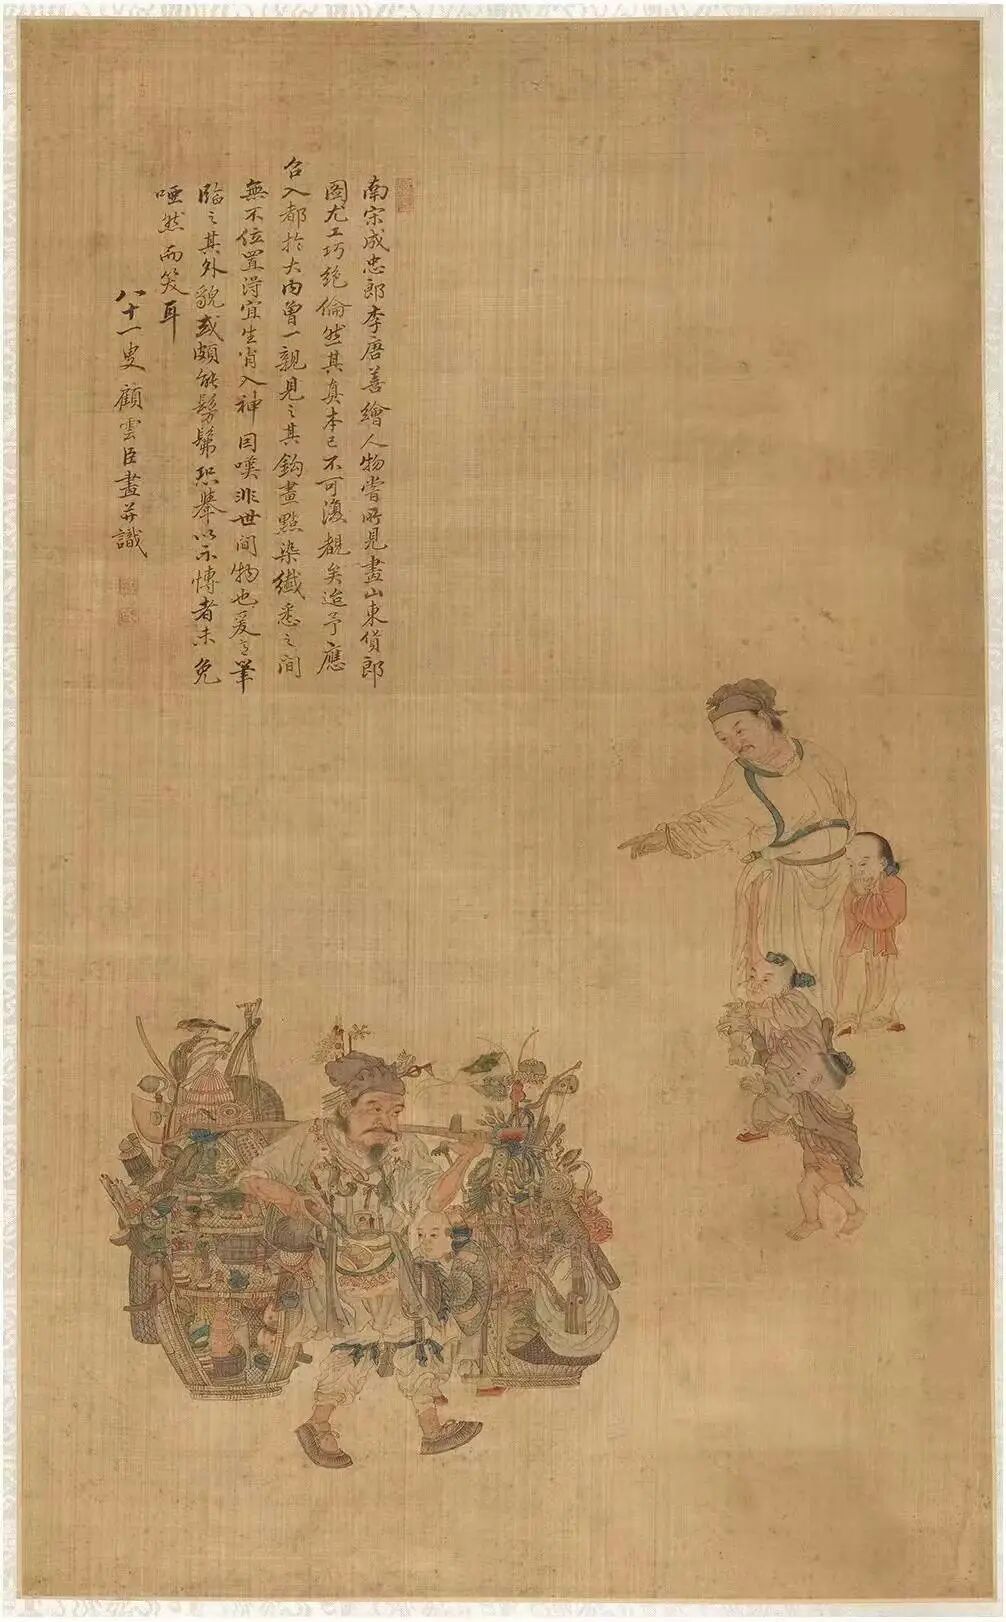 南宋成忠郎李唐善繪人物嘗所見畫山東貨郎
圖尤工巧絕倫然其真本已不可復覩矣迨予應
召入都於大內曾一親見之其鈎畫點染纖悉之間
無不位置得宜生肖入神因嘆非世間物也爰筆
臨之其外貌或頗能髣髴恐舉以示博者未免
啞然而笑耳
八十一叟顧雲臣畫并識